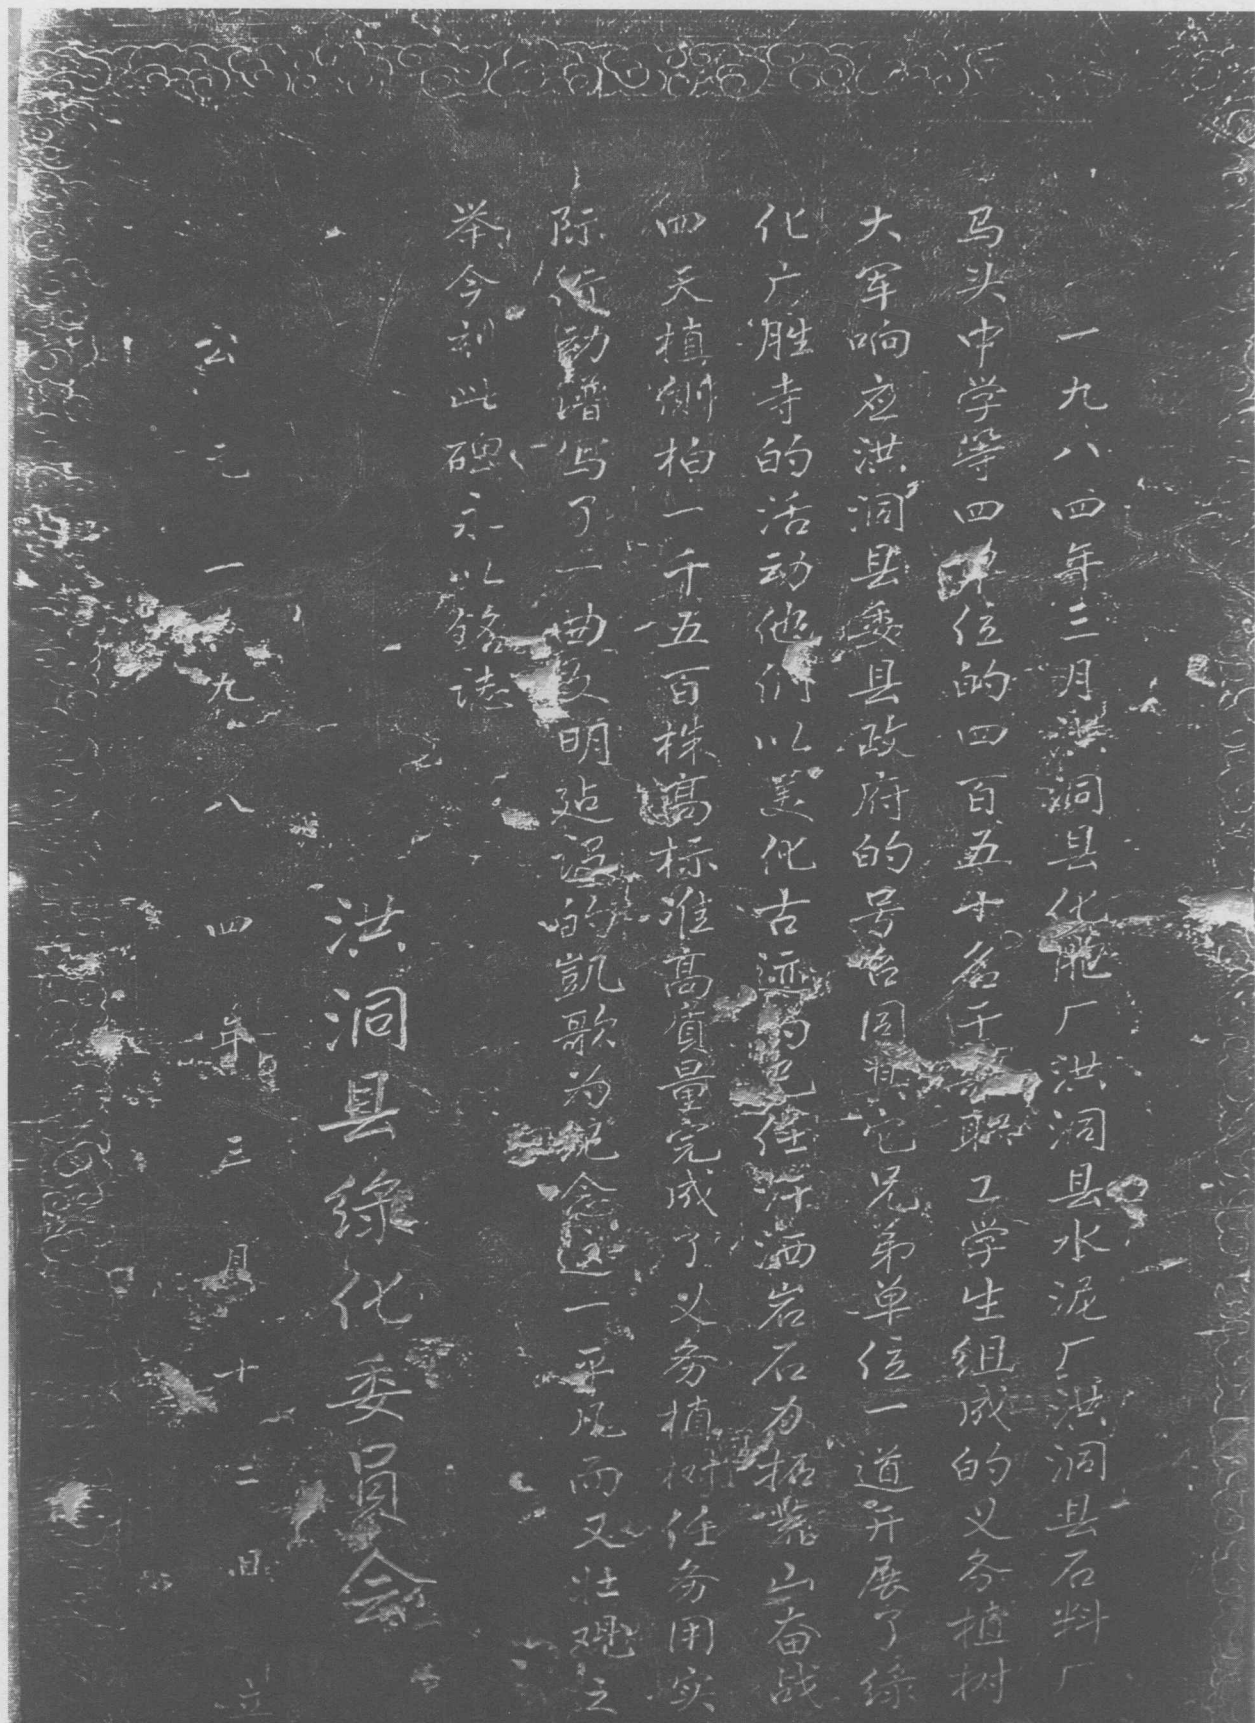 一九八四年三月洪洞县化肥厂洪洞县水泥厂洪洞县石料厂
马头中学等四单位的四百五十名干部职工学生组成的义务植树
大军响应洪洞县委县政府的号召同其它兄弟单位一道开展了绿
化广胜寺的活动他们以美化古迹为己任汗洒岩石力拓荒山奋战
四天植侧柏一千五百株高标准高质量完成了义务植树任务用实
际行动谱写了一曲文明建设的凯歌为纪念这一平凡而又壮观之
举今刻此碑永以铭志
洪洞县绿化委员会
公元一九八四年三月十二日立